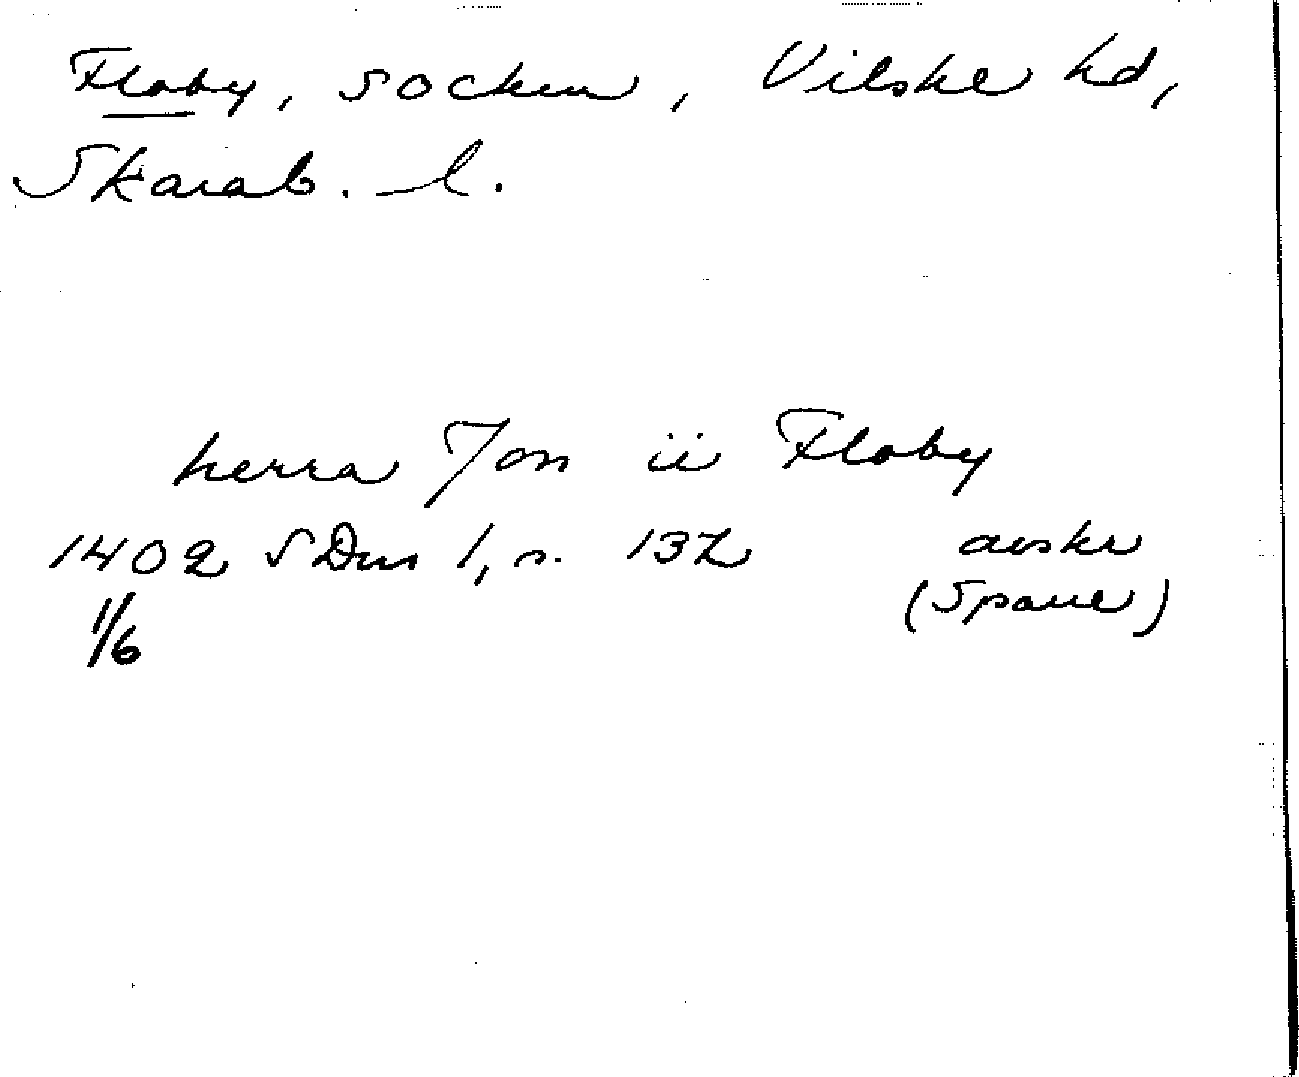 Floby, socken, Vilske hd,
Skarab. l.
herra Jon ii Floby
1402 SDns 1, s. 132 avskr
1/6 (Spaue)